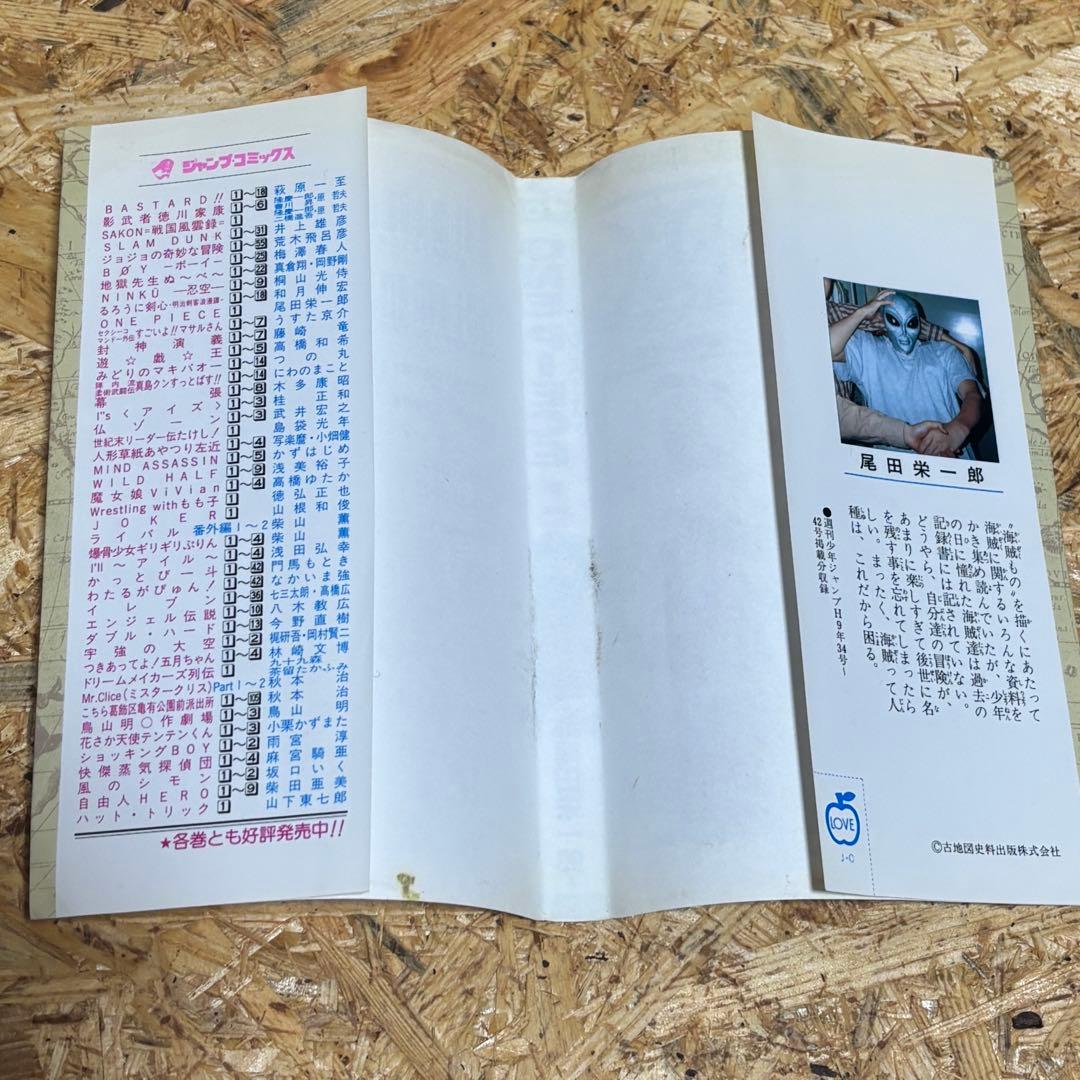 ジャンプ・コミックス
BASTARD!! 1～18 萩原一至
影武者徳川家康 1～6 隆慶一郎・原哲夫
SAKON=戦国風雲録= 1
SLAM DUNK 1～31 井上雄彦
ジョジョの奇妙な冒険 荒木飛呂彦
BØY ―ボーイ― 1～25 梅澤春人
地獄先生ぬ～べ～ 1～22 真倉翔・岡野剛
NINKŪ ―忍空― 1～9 桐山光侍
るろうに剣心・明治剣客浪漫譚・ 1～18 和月伸宏
ONE PIECE 1 尾田栄一郎
セクシーコマンドー外伝すごいよ!!マサルさん 1～7 うすた京介
封神演義 1～7 藤崎竜
遊☆戯☆王 1～5 高橋和希
みどりのマキバオー 1～14 つの丸
陣内流柔術武闘伝真島クンすっとばす!! 1～14 にわのまこと
幕張 1～8 木多康昭
I"s〈アイズ〉 1～3 桂正和
仏ゾーン 1～3 武井宏之
世紀末リーダー伝たけし! 1 島袋光年
人形草紙あやつり左近 1～4 写楽麿・小畑健
MIND ASSASSIN 1～5 かずはじめ
WILD HALF 1～9 浅美裕子
魔女娘ViVian 1～4 高橋ゆたか
Wrestling withもも子 1 徳弘正也
JOKER 1 山根和俊
ライバル 番外編1～2 柴山薫
爆骨少女ギリギリぷりん 1～4 柴山薫
I'll ～アイル～ 1～4 浅田弘幸
かっとび一斗 1～42 門馬もとき
わたるがぴゅん! 1～42 なかいま強
イレブン 1～36 七三太朗・高橋広
エンジェル伝説 1～10 八木教広
ダブル・ハード 1～13 今野直樹
宇強の大空 1～2 梶研吾・岡村賢二
つきあってよ!五月ちゃん 1～4 林崎文博
ドリームメイカーズ列伝 1 九十九森 茶留たかふみ
Mr.Clice(ミスタークリス) Part1～2 秋本治
こちら葛飾区亀有公園前派出所 1～105 秋本治
鳥山明○作劇場 1～3 鳥山明
花さか天使テンテンくん 1～3 小栗かずまた
ショッキングBOY 1～2 雨宮淳
快傑蒸気探偵団 1～4 麻宮騎亜
風のシモン 1～2 坂口いく
自由人HERO 1～9 柴田亜美
ハット・トリック 1 山下東七郎
★各巻とも好評発売中!!
尾田栄一郎
“海賊もの”を描くにあたって
海賊に関するいろんな資料を
かき集め読んでいたが、少年
の日に憧れた海賊達は過去の
記録書には記されていない。
どうやら、自分達の冒険が、
あまりに楽しすぎて後世に名
を残す事を忘れてしまったら
しい。まったく、海賊って人
種は、これだから困る。
●週刊少年ジャンプH9年34号～
42号掲載分収録
LOVE
J・C
©古地図史料出版株式会社